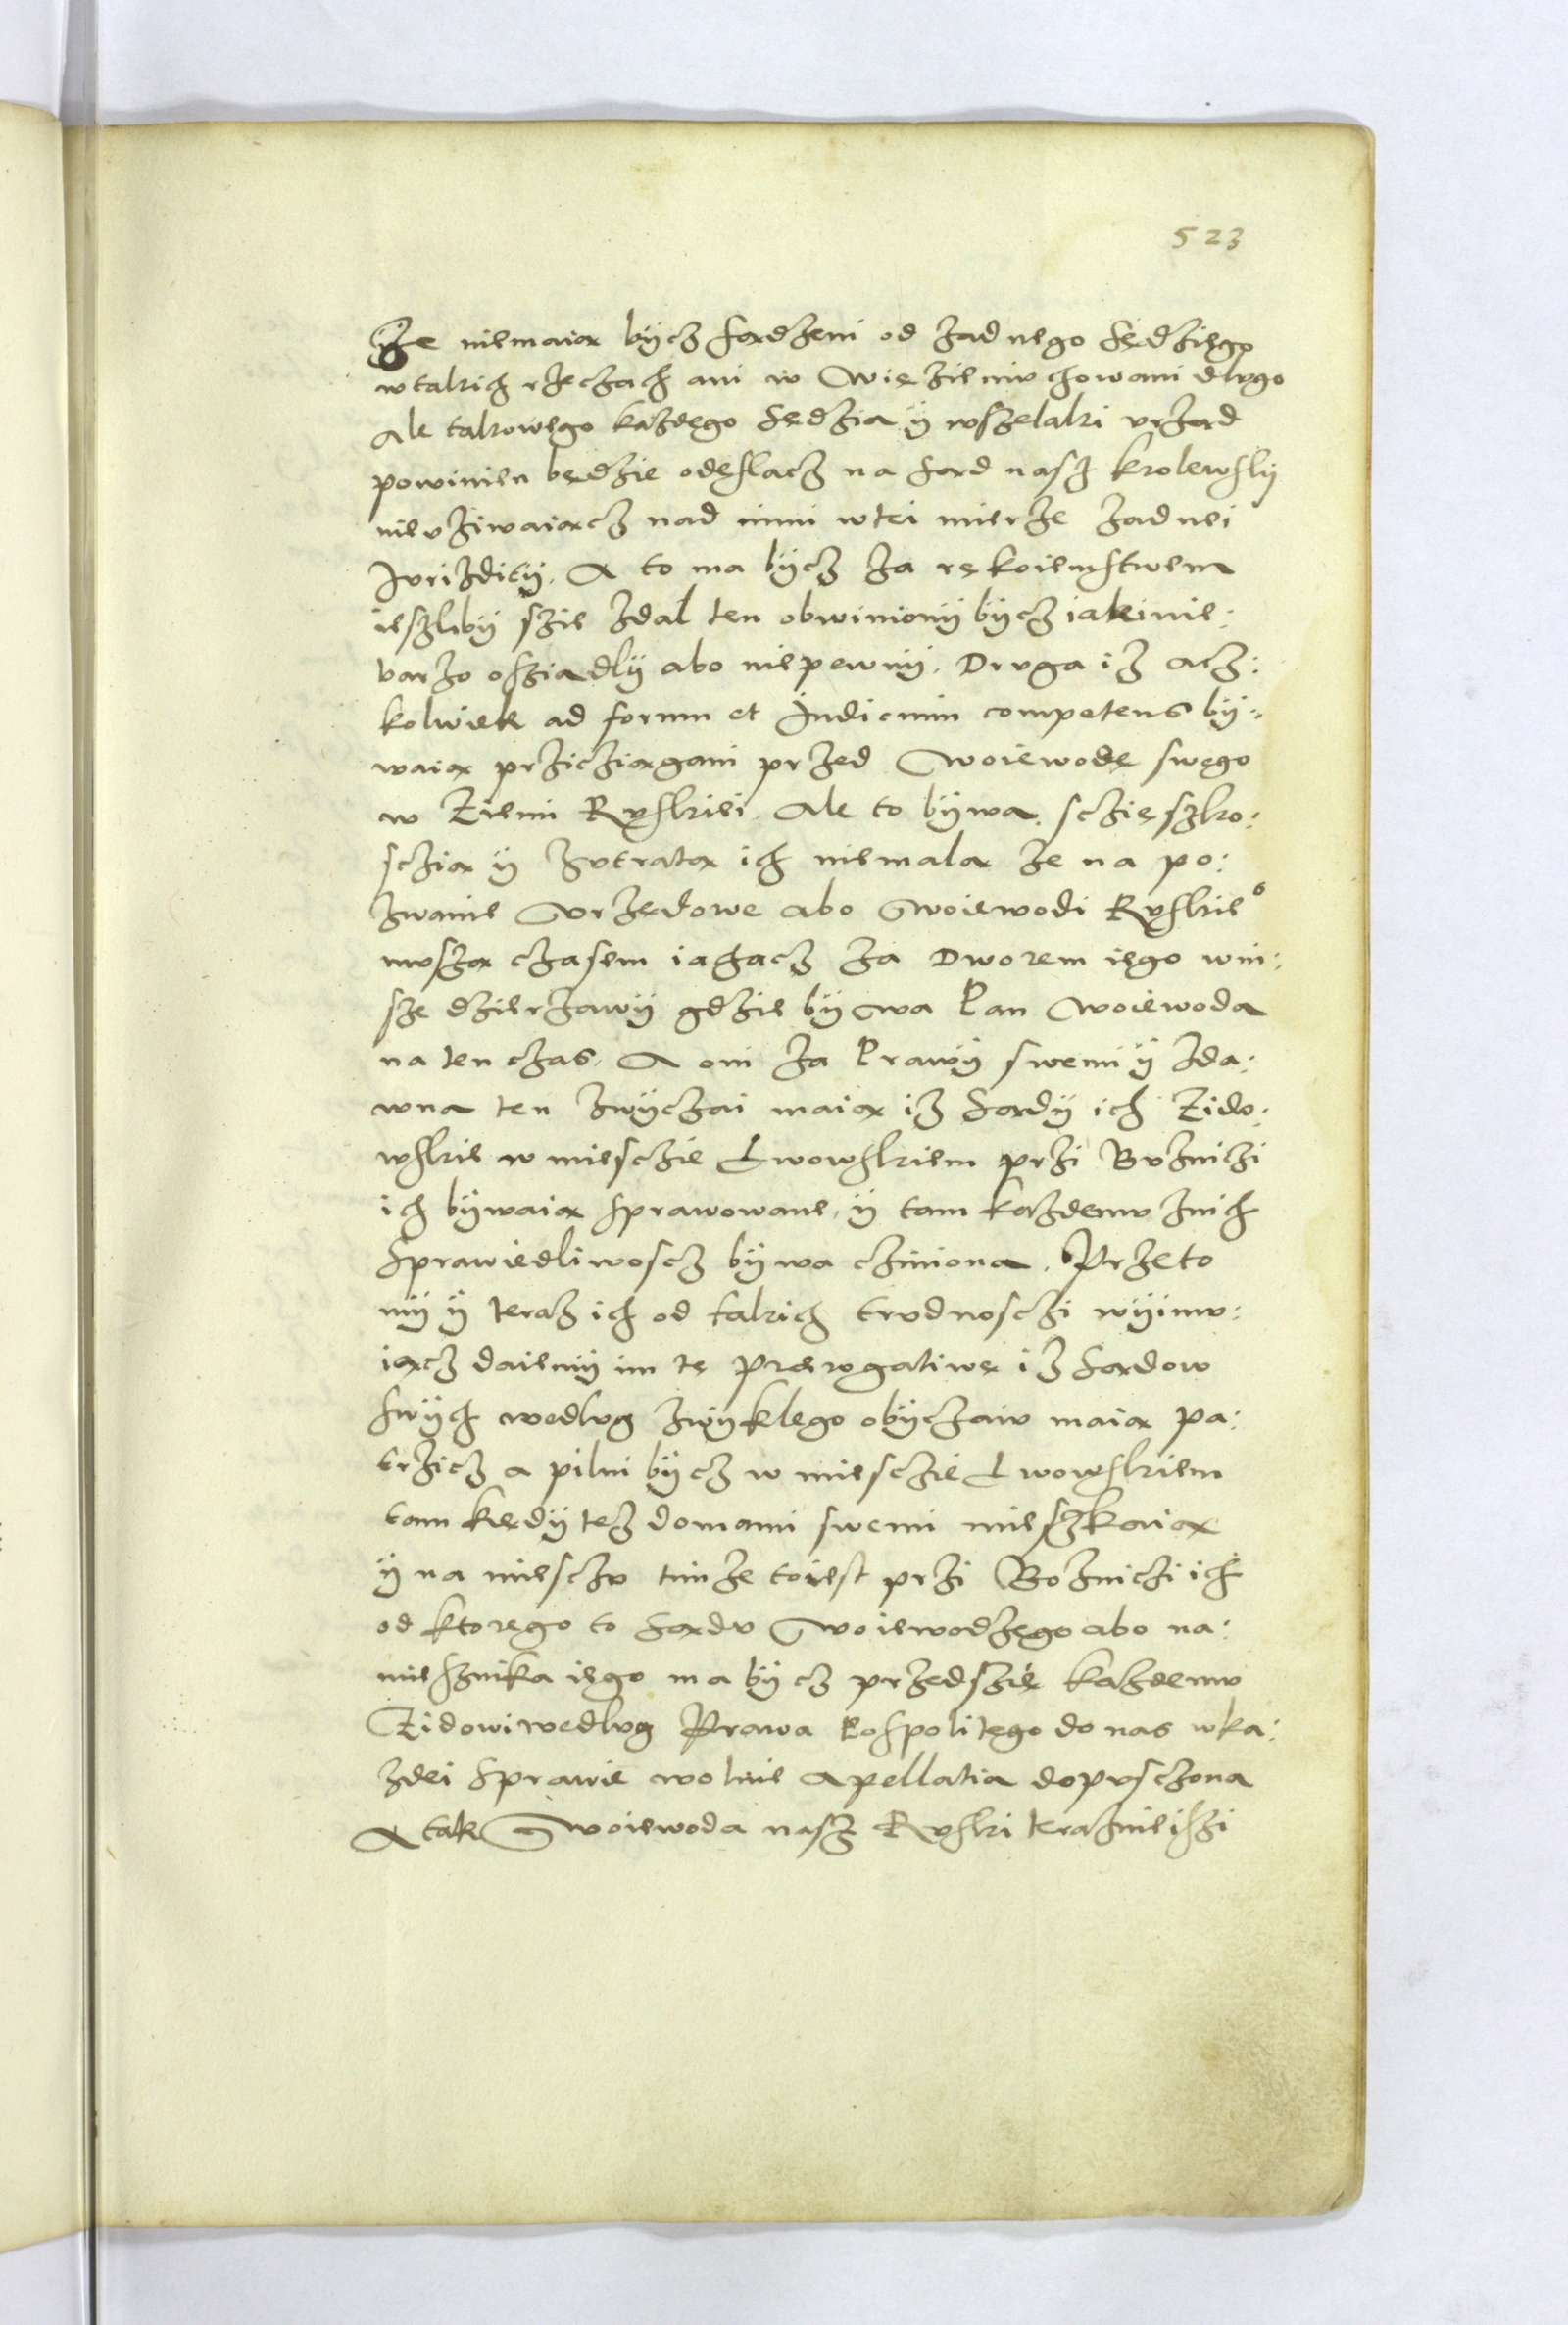 523
Ze niemaią bÿcz sądzeni od zadnego sędziego
wtakich rzeczach ani w więzieniu chowani dlugo
Ale takowego kazdego sędzia ÿ wszelaki urząd
powinien będzie odeslacz na sąd nasz krolewskÿ
nieuziwaiącz nad nimi wtei mierze zadnei
Jurizditÿ. A to ma bÿcz za rękoiemstwem
ieszlibÿ szie zdal ten obwinionÿ bÿcz iakinie:
barzo osziadlÿ abo niepewnÿ. Druga iz acz:
kolwiek ad forum et Judicium competens bÿ:
waią prziciziągani przed Woiewodę swego
w Ziemi Ruskiei. Ale to bÿwa. sczięszko:
scią ÿ zutratą ich niemalą ze na po:
zwanie Urzędowe abo Woiewodi Ruskie°
muszą czasem iachacz za Dworem iego wni:
sze dzierzawÿ gdzie bÿwa Pan Woiewoda
na ten czas. A oni za Prawÿ swemi ÿ zda:
wna ten zwÿczai maią iz sądÿ ich Zido:
wskie w miesczie Lwowskiem przi Buznici
ich bÿwaią sprawowane, ÿ tam kazdemu znich
Sprawiedliwoscz bÿwa cziniona. Przeto
mÿ ÿ teraz ich od takich trudnosczi wÿimu:
iącz daiemÿ im tę Prærogatiwę iz sądow
swÿch wedlug zwÿklego obÿczaiu maią pa:
trzicz a pilni bÿcz w miesczie Lwowskiem
tam kiedÿ tez domami swemi mieszkaią
ÿ na miesczu timze toiest przi Boznici ich
od ktorego to sądu Woiewodzego abo na:
miesznika iego ma bÿcz przedszię kazdemu
Zidowi wedlug Prawa Pospolitego do nas wka:
zdei sprawie wolnie apellatia dopusczona
A tak Woiewoda nasz Ruski teraznieiszi